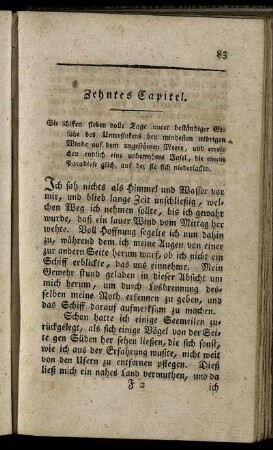 83
Zehntes Capitel.
Sie schiffen sieben volle Tage unter beständiger Ge-
fahr des Untersinkens bey mindesten widrigen
Winde auf dem ungestümen Meere, und errei-
chen endlich eine unbewohnte Insel, die einem
Paradiese glich, auf der sie sich niederlassen.
Ich sah nichts als Himmel und Wasser vor
mir, und blieb lange Zeit unschließig, wel-
chen Weg ich nehmen sollte, bis ich gewahr
wurde, daß ein lauer Wind vom Mittag her
wehte. Voll Hoffnung segelte ich nun dahin
zu, während dem ich meine Augen von einer
zur andern Seite herum warf, ob ich nicht ein
Schiff erblickte, das uns einnehme. Mein
Gewehr stund geladen in dieser Absicht um
mich herum, um durch Losbrennung des-
selben meine Noth erkennen zu geben, und
das Schiff darauf aufmerksam zu machen.
Schon hatte ich einige Seemeilen zu-
rückgelegt, als sich einige Vögel von der Sei-
te gen Süden her sehen ließen, die sich sonst,
wie ich aus der Erfahrung wußte, nicht weit
von den Ufern zu entfernen pflegen. Dieß
ließ mich ein nahes Land vermuthen, und da
F 2
ich